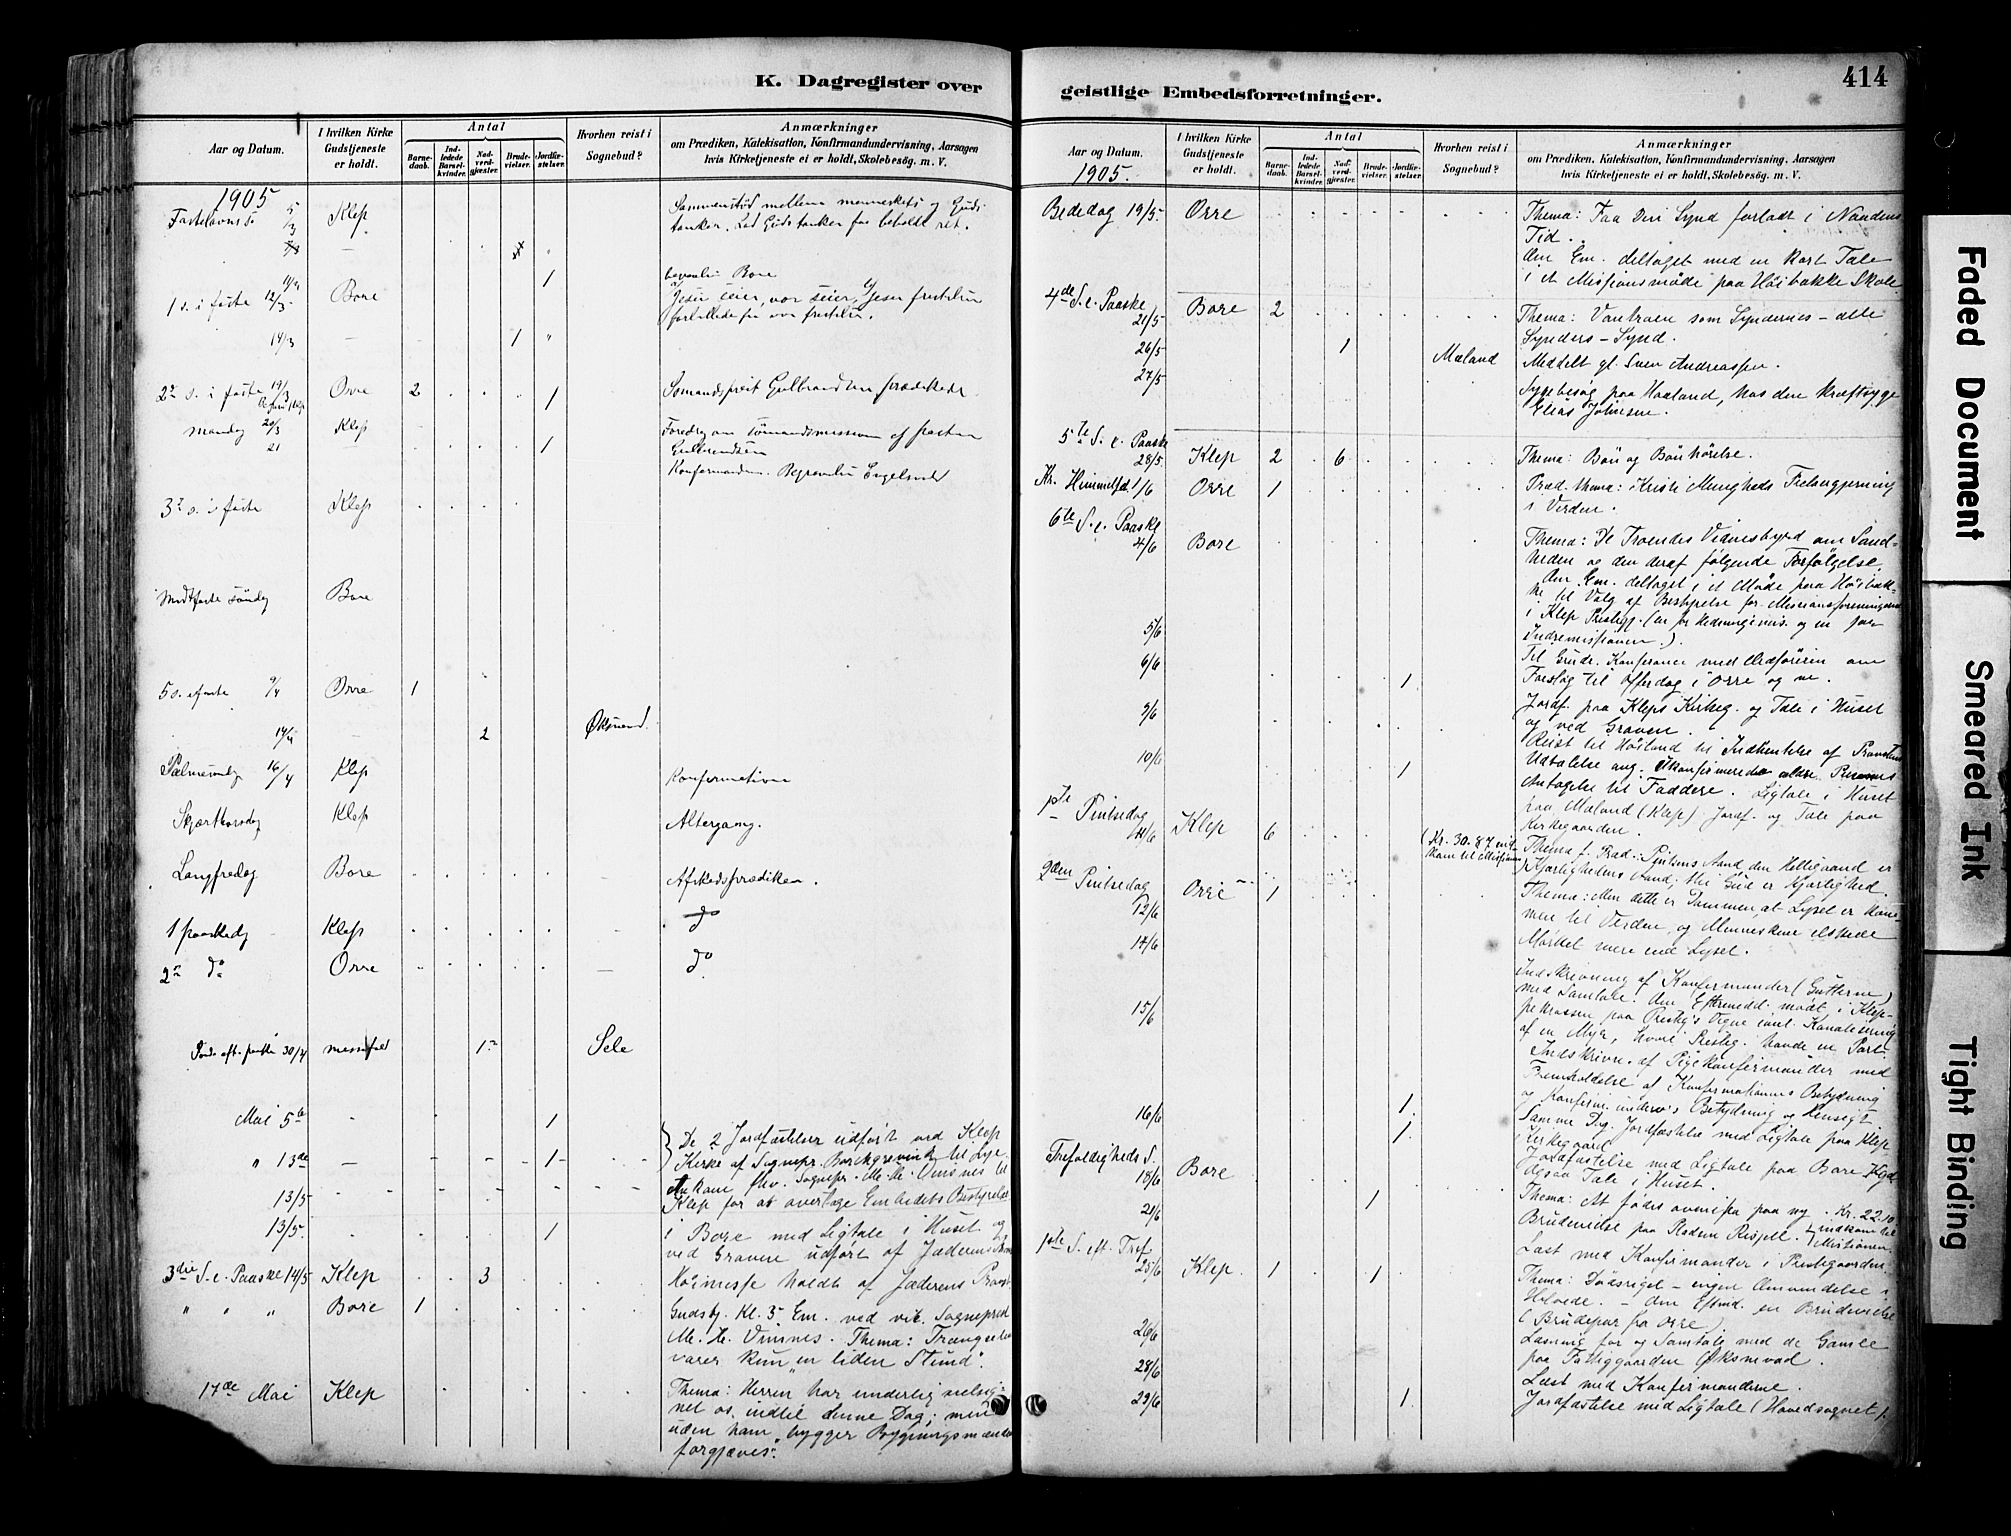 K. Dagregister over
Aar og Datum.
I hvilken Kirke Gudstjeneste er holdt.
Antal
Barnedaab.
Indledede Barselkvinder.
Nadverdgjæster.
Brudevielser.
Jordfæstelser.
Hvorhen reist i Sognebud?
Anmærkninger
om Prædiken, Katekisation, Konfirmandundervisning, Aarsagen
hvis Kirketjeneste ei er holdt, Skolebesög. m. V.
1905
Fastelavns S 5/3 Klep Sammenstød mellem menneskets og Guds
tanker. Lad Guds tanker faa beholde ret.
11/3 1 Bore
1 s. i faste 12/3. Bore Jesu seier, vor seier, Jesu fristelser
14/3 — 1 "
2n s. i faste 19/3 Orre 2 1 Sømandsprest Gulbrandsen prædikede.
mandag 20/3 Klep Foredrag om Sømandsmission af presten
21 1 Gulbrandsen
3n s. i faste Klep
Midtfaste søndag Bore
5 s. i faste 9/4 Orre 1
14/4 — 2 Øksnevad.
Palmesøndag 16/4 Klep Konfirmation
Skjærtorsdag Klep Altergang.
Langfredag Bore Afskedsprædiken.
1 paaskedg Klep do
2n do Orre do
Sønd. eft. paaske 30/4 messefald 1 Sele
Mai 5te 1
De 2 Jordfæstelser udført ved Klep
" 13de — 1 Kirke af Sognepr. Borchgrevink til Lye.
13/5 Ankom Sognepr. M. H. Omsnes til
Klep for at overtage Embedets Bestyrelse
13/5. 1 i Bore med Ligtale i Huset og
ved Graven udført af Jæderens
3die S. e. Paaske 14/5 Klep 3 Høimesse holdt af Jæderens Provst
" " " Bore 1 Gudstj. Kl. 5 Em. ved vik. Sogneprest
M. H. Omsnes. Thema: Trængselen
varer kun "en liden Stund".
17de Mai Klep Thema: Herren har underlig velsig-
net os indtil denne Dag; men
uden ham "bygger Bygningsmændene
forgjæves".
geistlige Embedsforretninger.
414
Aar og Datum.
I hvilken Kirke Gudstjeneste er holdt.
Antal
Barnedaab.
Indledede Barselkvinder.
Nadverdgjæster.
Brudevielser.
Jordfæstelser.
Hvorhen reist i Sognebud?
Anmærkninger
om Prædiken, Katekisation, Konfirmandundervisning, Aarsagen
hvis Kirketjeneste ei er holdt, Skolebesög. m. V.
1905
Bededag 19/5 Orre Thema: Faa Din Synd forladt i Naadens
Tid.
Om Em. deltaget med en kort Tale
i et Missionsmøde paa Høibakke Skole
4de S. e. Paaske 21/5 Bore 2 Thema: Vantroen som Syndernes – alle
Synders – Synd.
26/5 1 Mæland Meddelt gl. Sven Andreassen.
27/5 Sygebesøg paa Haaland, hos den kræftsyge
Elias Johnsen.
5te S. e. Paaske 28/5 Klep 2 6 Thema: Bøn og Bønhørelse.
Kr. Himmelfd. 1/6 Orre 1 Præd. Thema: Kristi Menigheds Frelsergjerning
i Verden.
6te S. e. Paaske 4/6 Bore Thema: De Troendes Vidnesbyrd om Sand-
heden og den deraf følgende Forfølgelse.
Om Em. deltaget i et Møde paa Høibak-
ke til Valg af Bestyrelse for Missionsforeningerne
5/6 i Klep Prestegj. (en for Hedningemis. og en for
Indremissionen.)
6/6 Til Konference med Medhjælperen om
1 Forslag til Offerdag i Orre og
9/6 Jordf. paa Kleps Kirkeg. og Tale i Huset
og ved Graven.
10/6 Reist til Høiland til Indhentelse af Provstens
1 Udtalelse ang. Ukonfirmerede ældre
Antagelse til Faddere. Ligtale i Huset
1ste Pintsedag 11/6 Klep 6 (Kr. 30.87 ind-
kom til Missionen) paa Mæland (Klep) Jordf. og Tale paa
Kirkegaarden.
Thema f. Præd.: Pintsens Aand, den Helligaand er
2den Pintsedag 12/6 Orre 1 Kjærlighedens Aand; thi Gud er Kjærlighed.
Thema: Men dette er Dommen, at Lyset er kom-
men til Verden, og Menneskene elskede
14/6 Mørket mere end Lyset.
Indskrivning af Konfirmander (Gutterne)
med Samtale. Om Eftermidd. mødt i Klep-
15/6 pekrossen paa Presteg's Vegne Kanalisering
af en Myr, hvori Presteg. havde en Part.
Indskrivn. af Pigekonfirmander med
Fremholdelse af Konfirmationens Betydning
16/6 1 og Konfirm. underv's Betydning og Hensigt.
1 Samme Dag Jordfæstelse med Ligtale paa Klep
Kirkegaard
Trefoldigheds S. 18/6 Bore Jordfæstelse med Ligtale paa Bore Kgd.
Ogsaa Tale i Huset.
21/6 1 Thema: At fødes ovenfra paa ny. Kr. 22.10
indkom til
Missionen.
Brudevielse paa
1ste S. eft. Tref. 25/6 Klep 1 1 Læst med Konfirmander i Prestegaarden.
Thema: Dødsriget – ingen Omvendelse i
Helvede. – Om Eftmd. en Brudevielse
26/6 (Brudepar fra Orre)
Læsning for og Samtale med de Gamle
28/6 paa Fattiggaarden Øksnevad.
Læst med Konfirmanderne.
29/6 1 Jordfæstelse med Ligtale (Hovedsognet).
Faded Document
Smeared Ink
Tight Binding